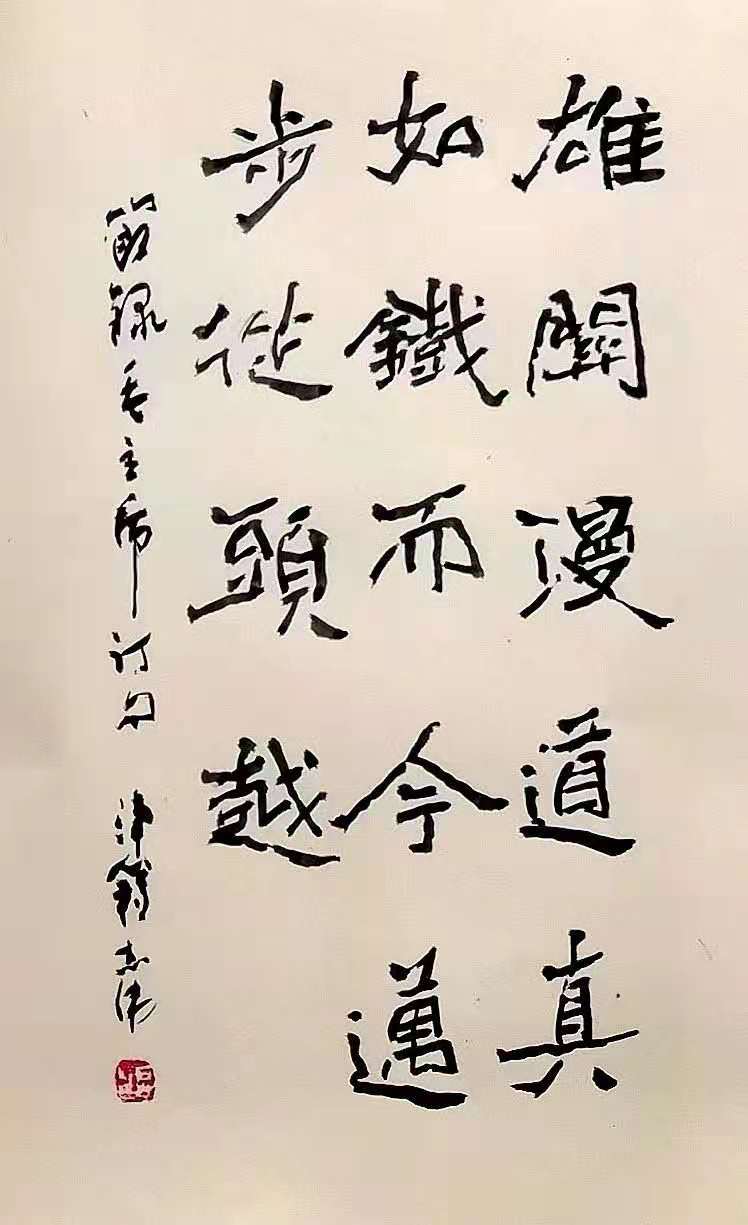 雄關漫道真
如鐵而今邁
步從頭越
節錄毛主席詩句 津籍志偉